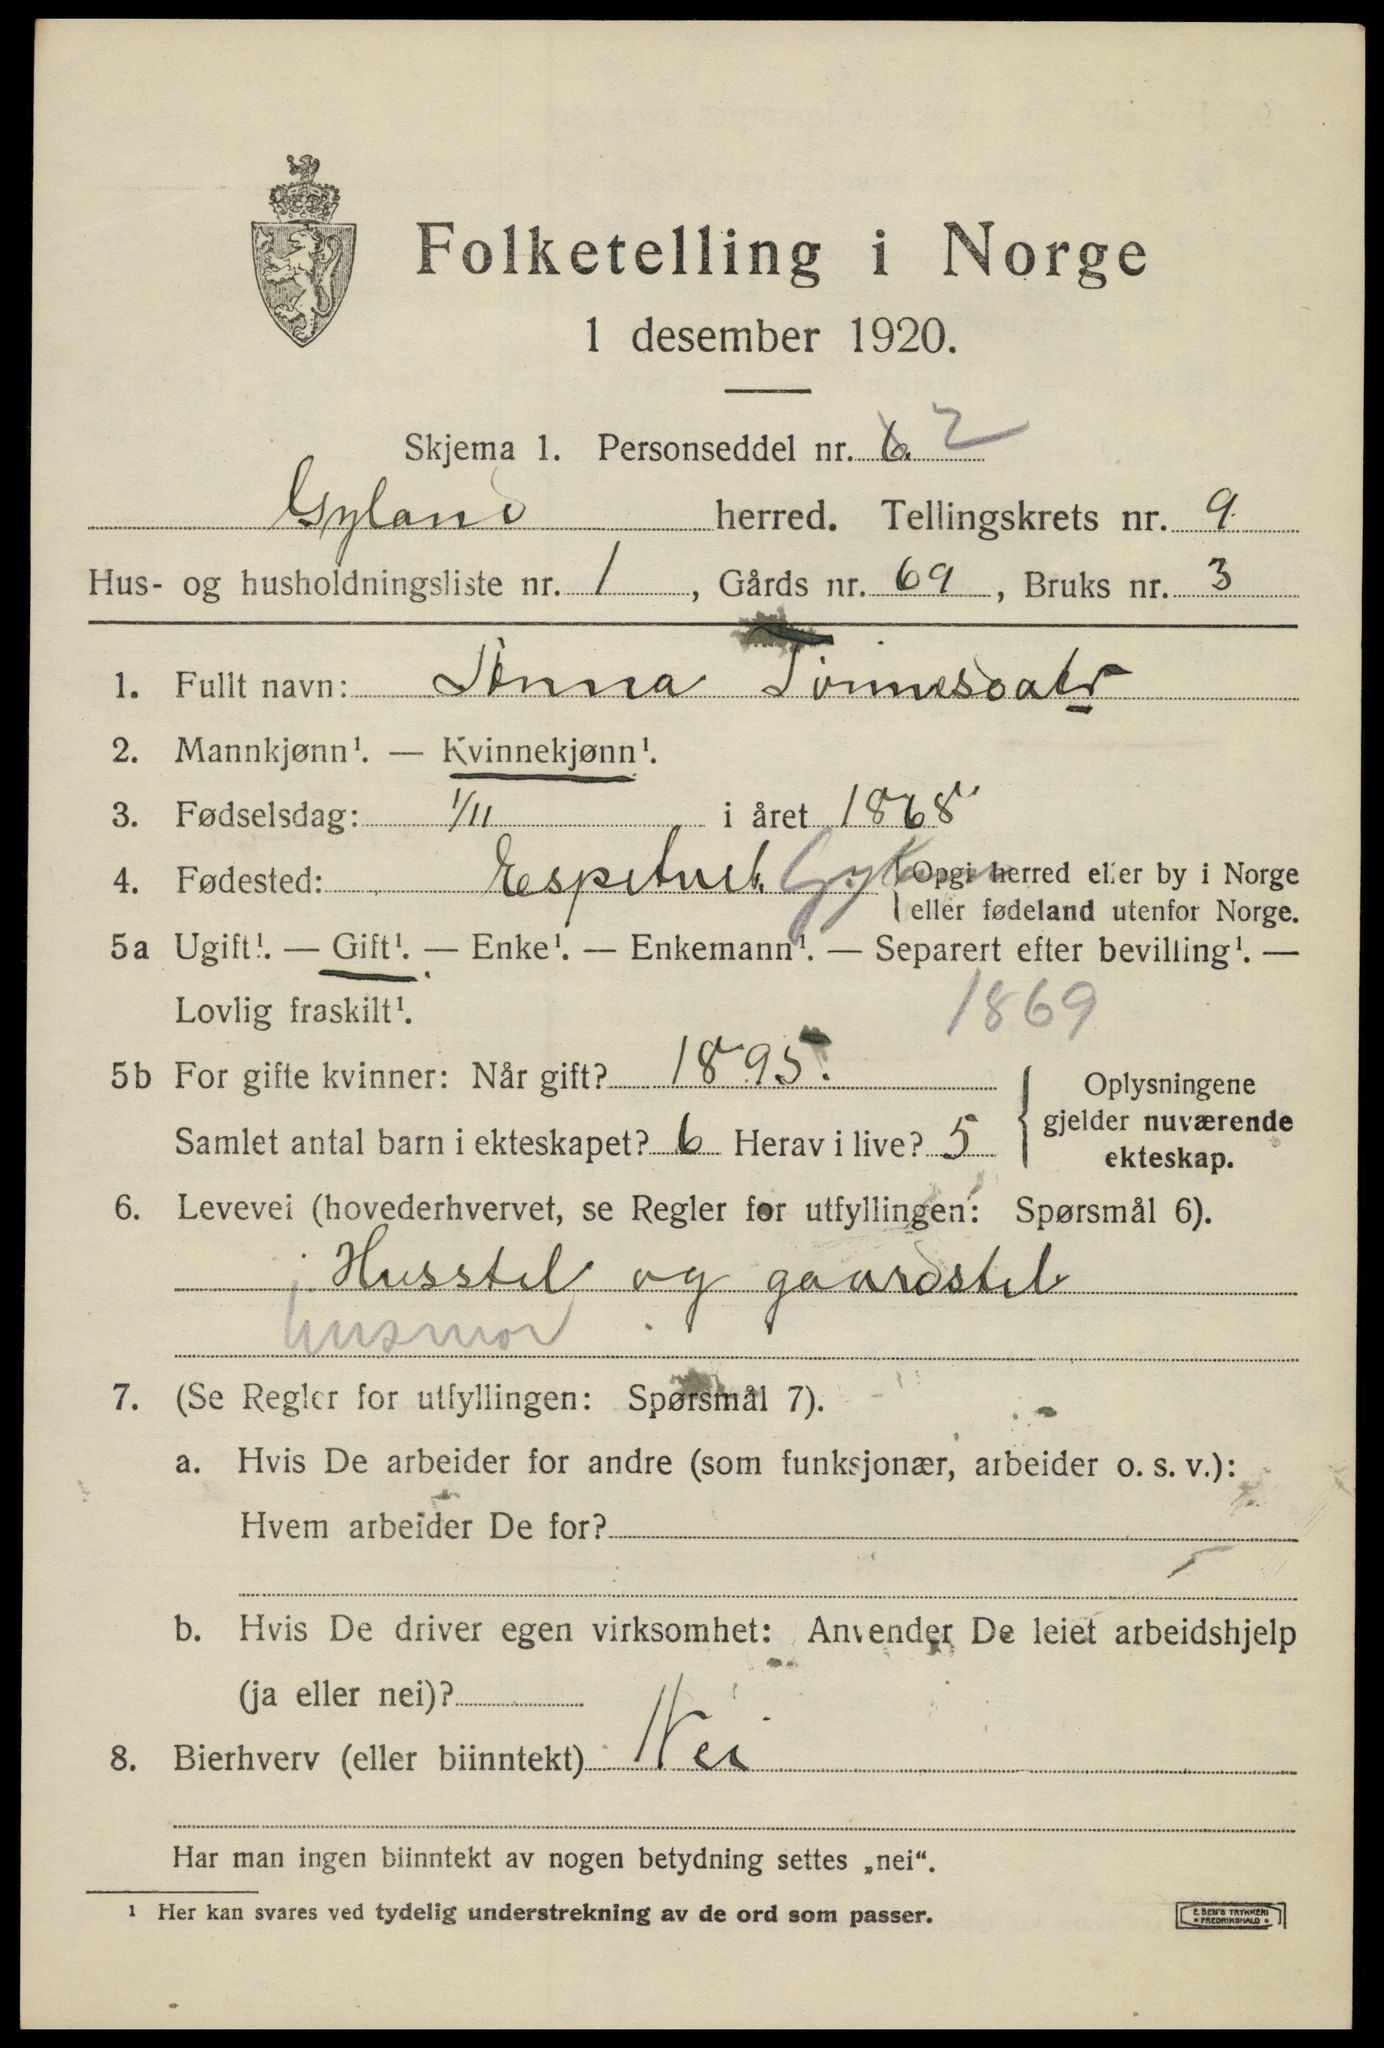 Folketelling i Norge
1 desember 1920.
Skjema 1. Personseddel nr. 6. 2
Gyland herred. Tellingskrets nr. 9.
Hus- og husholdningsliste nr. 1, Gårds nr. 69, Bruks nr. 3
1. Fullt navn: Anna Tønnesdatr
2. Mannkjønn¹. — Kvinnekjønn¹.
3. Fødselsdag: 1/11 i året 1868
4. Fødested: Opgi herred eller by i Norge
eller fødeland utenfor Norge.
5a Ugift¹. — Gift¹. — Enke¹. — Enkemann¹. — Separert efter bevilling¹. —
Lovlig fraskilt¹. 1869
5b For gifte kvinner: Når gift? 1895. Oplysningene
gjelder nuværende
Samlet antal barn i ekteskapet? 6 Herav i live? 5 ekteskap.
6. Levevei (hovederhvervet, se Regler for utfyllingen: Spørsmål 6).
Husstel og gaardstel
husmor
7. (Se Regler for utfyllingen: Spørsmål 7).
a. Hvis De arbeider for andre (som funksjonær, arbeider o. s. v.):
Hvem arbeider De for?
b. Hvis De driver egen virksomhet: Anvender De leiet arbeidshjelp
(ja eller nei)?
8. Bierhverv (eller biinntekt) Nei
Har man ingen biinntekt av nogen betydning settes „nei“.
¹ Her kan svares ved tydelig understrekning av de ord som passer.
E. SEM'S TRYKKERI
• FREDRIKSHALD •